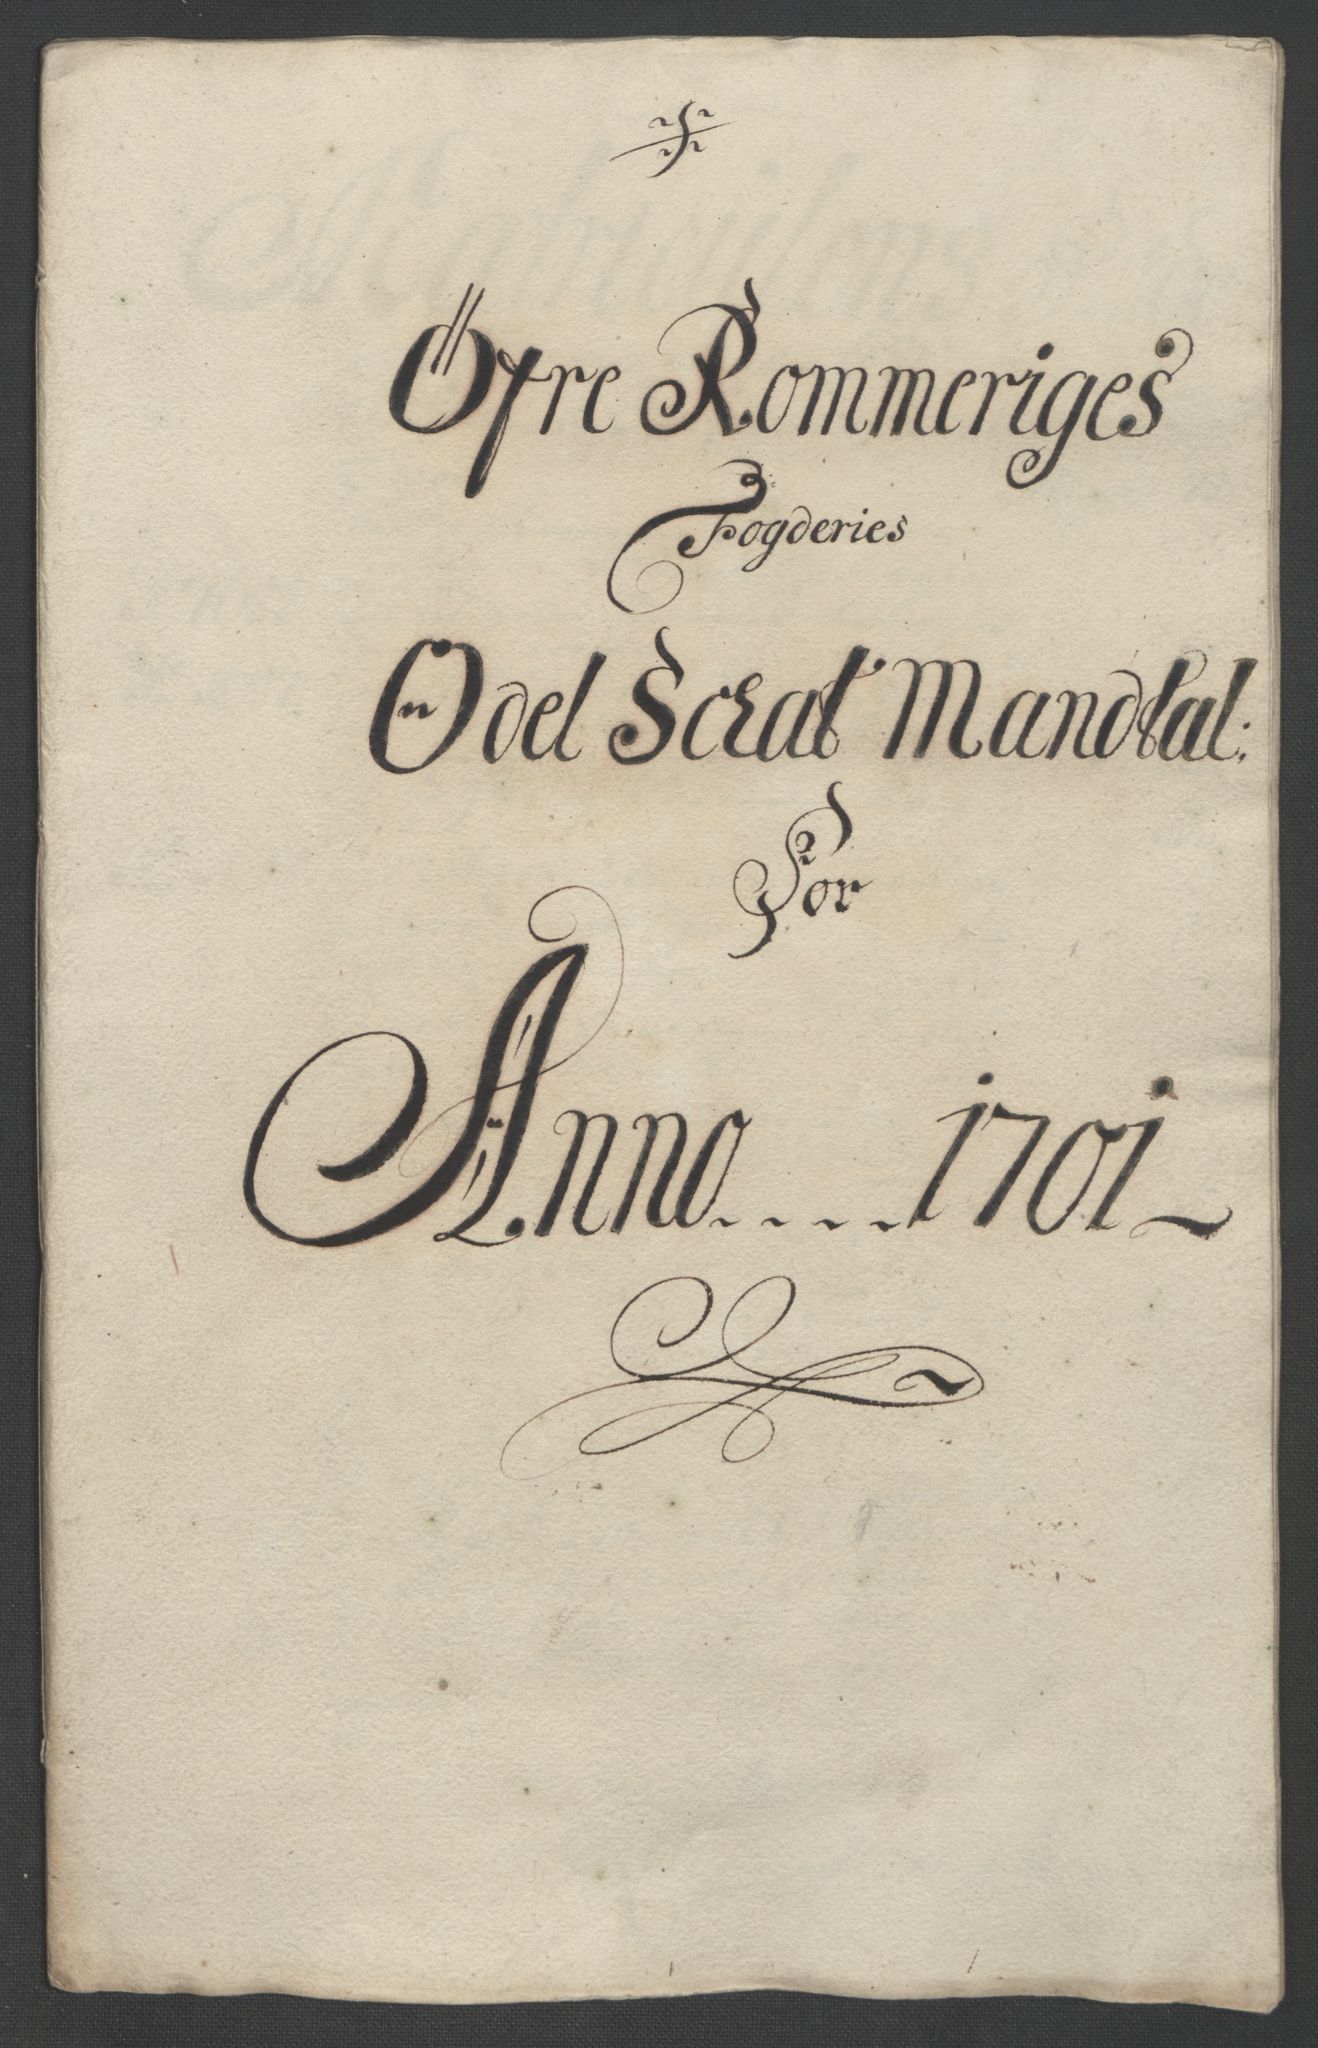 Öfre Rommeriges
Fogderies
Odel Scat Mandtal:
For
Anno....1701